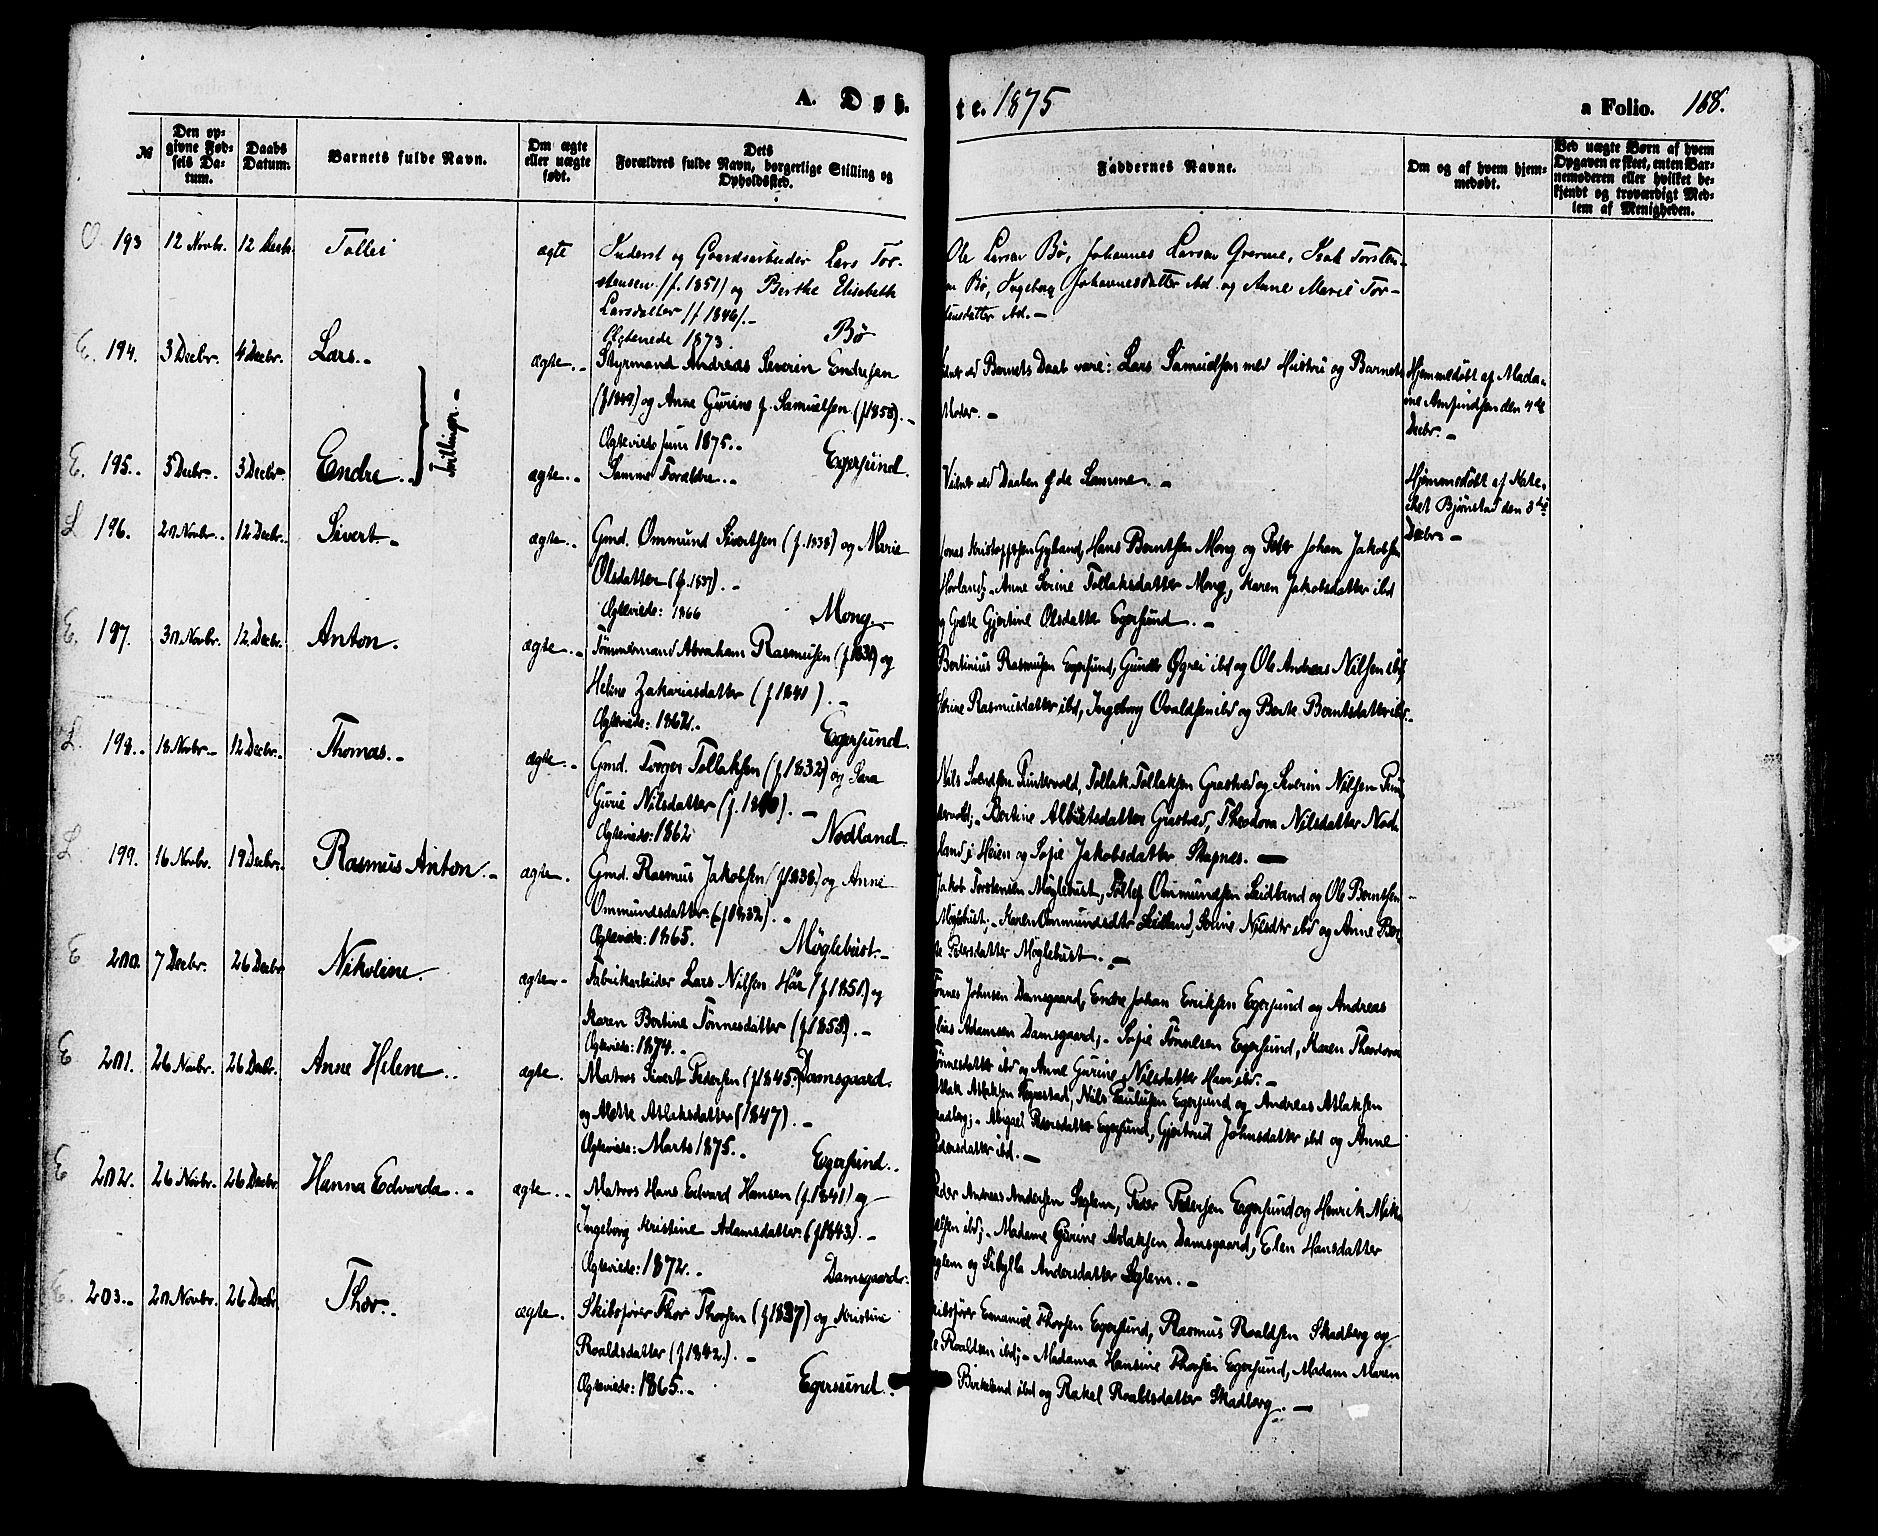 A. Døb-
te. 1875
a Folio. 168.
№
Den op-
givne Fød-
sels Da-
tum.
Daabs
Datum.
Barnets fulde Navn.
Om ægte
eller uægte
født.
Dets
Forældres fulde Navn, borgerlige Stilling og
Opholdssted.
Faddernes Navne.
Om og af hvem hjem-
medøbt.
Ved uægte Børn af hvem
Opgaven er skeet, enten Bar-
nemoderen eller hvilket be-
kjendt og troværdigt Med-
lem af Menigheden.
O. 193 12 Novbr. 12 Decbr. Tollei ægte Inderst og Gaardsarbeider Lars Tor-
stensen (f. 1851) og Berthe Elisabeth
Larsdatter (f 1846).-
Ægteviede 1873. Bø
Ole Larsen Bø, Johannes Larsen Isak Torsten-
Bø, Ingeborg Johannesdatter ibd og Anne Marie Tor-
E. 194. 3 Decbr. 4 Decbr. Lars.- ægte.- Styrmand Andreas Severin Endresen
(f 1849) og Anne Gurine f. Samuelsen (f 1855).-
Ægteviede Juni 1875.- Egersund.
ved Barnets Daab vare: Lars Samuelsen med Hustru og Barnets
Moder.-
Hjemmedøbt af Mada-
me den 4de
Decbr.-
Tvillinger.-
E. 195.. 3 Decbr.. 3 Decbr. Endre.. ægte.. Samme Forældre..
Vidner ved Daaben de Samme.-
Hjemmedøbt af Kate-
ket Bjørnstad den 3die
Decbr.-
L 196. 20 Novbr.. 12 Decbr.. Sivert.- ægte.. Gmd. Ommund Sivertsen (f. 1838) og Marie
Olsdatter (f. 1837).-
Ægteviede: 1866 Mong.-
Jonas Kristoffersen Gyland, Hans Berntsen Mong og Peder Johan Jakobsen
Hovland;- Anne Serine Tollaksdatter Mong, Karen Jakobsdatter ibd
og Grete Gjertine Olsdatter Egersund.-
E. 197. 30 Novbr. 12 Decbr. Anton. ægte..- Tømmermand Abraham Rasmussen (f 1830) og
Helene Zakariasdatter (f 1841).-
Ægteviede: 1862.- Egersund.
Bertinius Rasmussen Egersund, ibd og Ole Andreas Nilsen ibd
Rasmusdatter ibd, Ingeborg ibd og Berte Berntsdatter ibd.
L. 198.. 18 Novbr.- 12 Decbr.. Thomas.- ægte..- Gmd. Torger Tollaksen (f 1832) og Sara
Gurie Nilsdatter (f. 1840).-
Ægteviede: 1862 Nodland.
Nils Svendsen Tollak Tollaksen Grastved og Severin Nilsen
Bertine Grastved, Theodora Nilsdatter Nod-
land i Heien og Sofie Jakobsdatter Skapnes.-
L. 199. 16 Novbr. 19 Decbr. Rasmus Anton.- ægte. Gmd. Rasmus Jakobsen (f 1838) og Anne
Ommundsdatter. (f 1832).-
Ægteviede: 1865. Møglebust.-
Jakob Torstensen Møglebust, Ommundsen Leidland og Ole Berntsen
Møglebust;- Karen Ommundsdtr Leidland, Serine Nilsdtr ibd og Anne Ber-
te Pedersdatter Møglebust.-
E 200. 7 Decbr. 26 Decbr Nikoline. ægte.- Fabrikarbeider Lars Nilsen (f 1851) og
Karen Bertine Tønnesdatter (f 1853).-
Ægteviede: 1874.- Damsgaard.
Tønnes Johnsen Damsgaard, Endre Johan Eriksen Egersund og Andreas
Elias Adamsen Damsgaard;- Sofie Tønnesen Egersund, Karen Theodora
Tønnesdatter ibd og Anne Gurine Nilsdatter ibd.-
E 201. 26 Novbr. 26 Decbr. Anne Helene.. ægte. Matros Sivert Pedersen (f 1845)
og Mette Atlaksdatter (1847).-
Ægteviede: Marts 1875.- Egersund..
Atlak Atlaksen Nils Paulsen Egersund og Andreas Atlaksen
Skadberg;- Abigael Pedersdatter Egersund, Gjertrud Johnsdatter ibd og Anne
Pedersdatter ibd.-
E 202. 26 Novbr.. 26 Decbr. Hanna Edvarda..- ægte..- Matros Hans Edvard Hansen (f. 1841) og
Ingeborg Kristine Adamsdatter (f 1843).-
Ægteviede: 1872.- Damsgaard.
Peder Andreas Andersen Seglem, Peder Pedersen Egersund og Henrik Mik-
kelsen ibd;- Madame Gurine Atlaksen Damsgaard, Elen Hansdatter
Seglem og Sibylla Andersdatter Seglem.-
E. 203.- 20 Novbr. 26 Decbr. Thor.- ægte. Skibsfører Thor Thorsen (f 1837) og Kristine
Roaldsdatter (f 1842.).-
Ægteviede: 1865.- Egersund.
Skibsfører Emanuel Thorsen Egersund, Rasmus Roaldsen Skadberg og
Roaldsen ibd;- Madame Hansine Thorsen Egersund, Madam Maren
Birkeland ibd og Rakel Roaldsdatter Skadberg.-